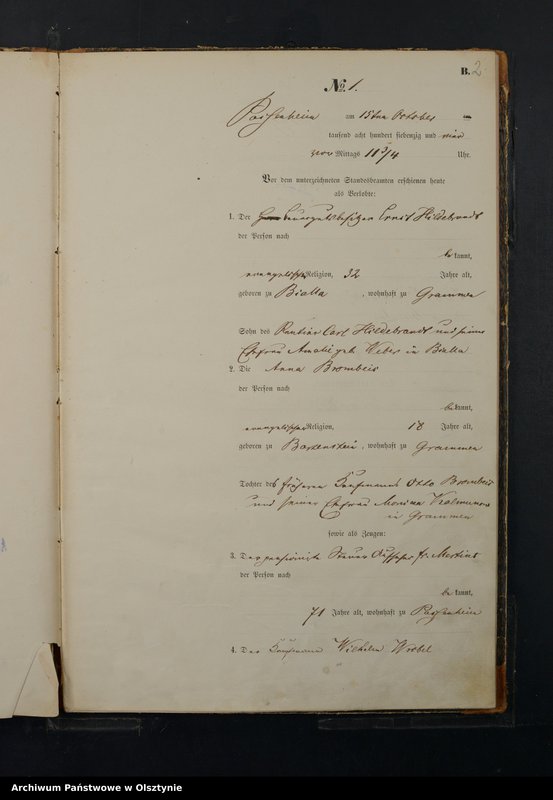 B. 2
№ 1.
Passenheim am 15ten October
tausend acht hundert siebenzig und vier
vor Mittags 11 3/4 Uhr.
Vor dem unterzeichneten Standesbeamten erschienen heute
als Verlobte:
1. Der Ernst Hildebrandt
der Person nach
be kannt,
evangelischer Religion, 32 Jahre alt,
geboren zu Bialla, wohnhaft zu Grammen
Sohn des Rentier Carl Hildebrandt und seiner
Ehefrau Amalie geb. Weber in Bialla
2. Die Anna Brombeis
der Person nach
bekannt,
evangelischer Religion, 18 Jahre alt,
geboren zu Bartenstein, wohnhaft zu Grammen
Tochter des früheren Kaufmanns Otto Brombeis
und seiner Ehefrau
in Grammen
sowie als Zeugen:
3. Der pensionirte Steuer Aufseher Fr. Mertins
der Person nach
be kannt,
71 Jahre alt, wohnhaft zu Passenheim
4. Der Kaufmann Wilhelm Wrobel
Archiwum Państwowe w Olsztynie